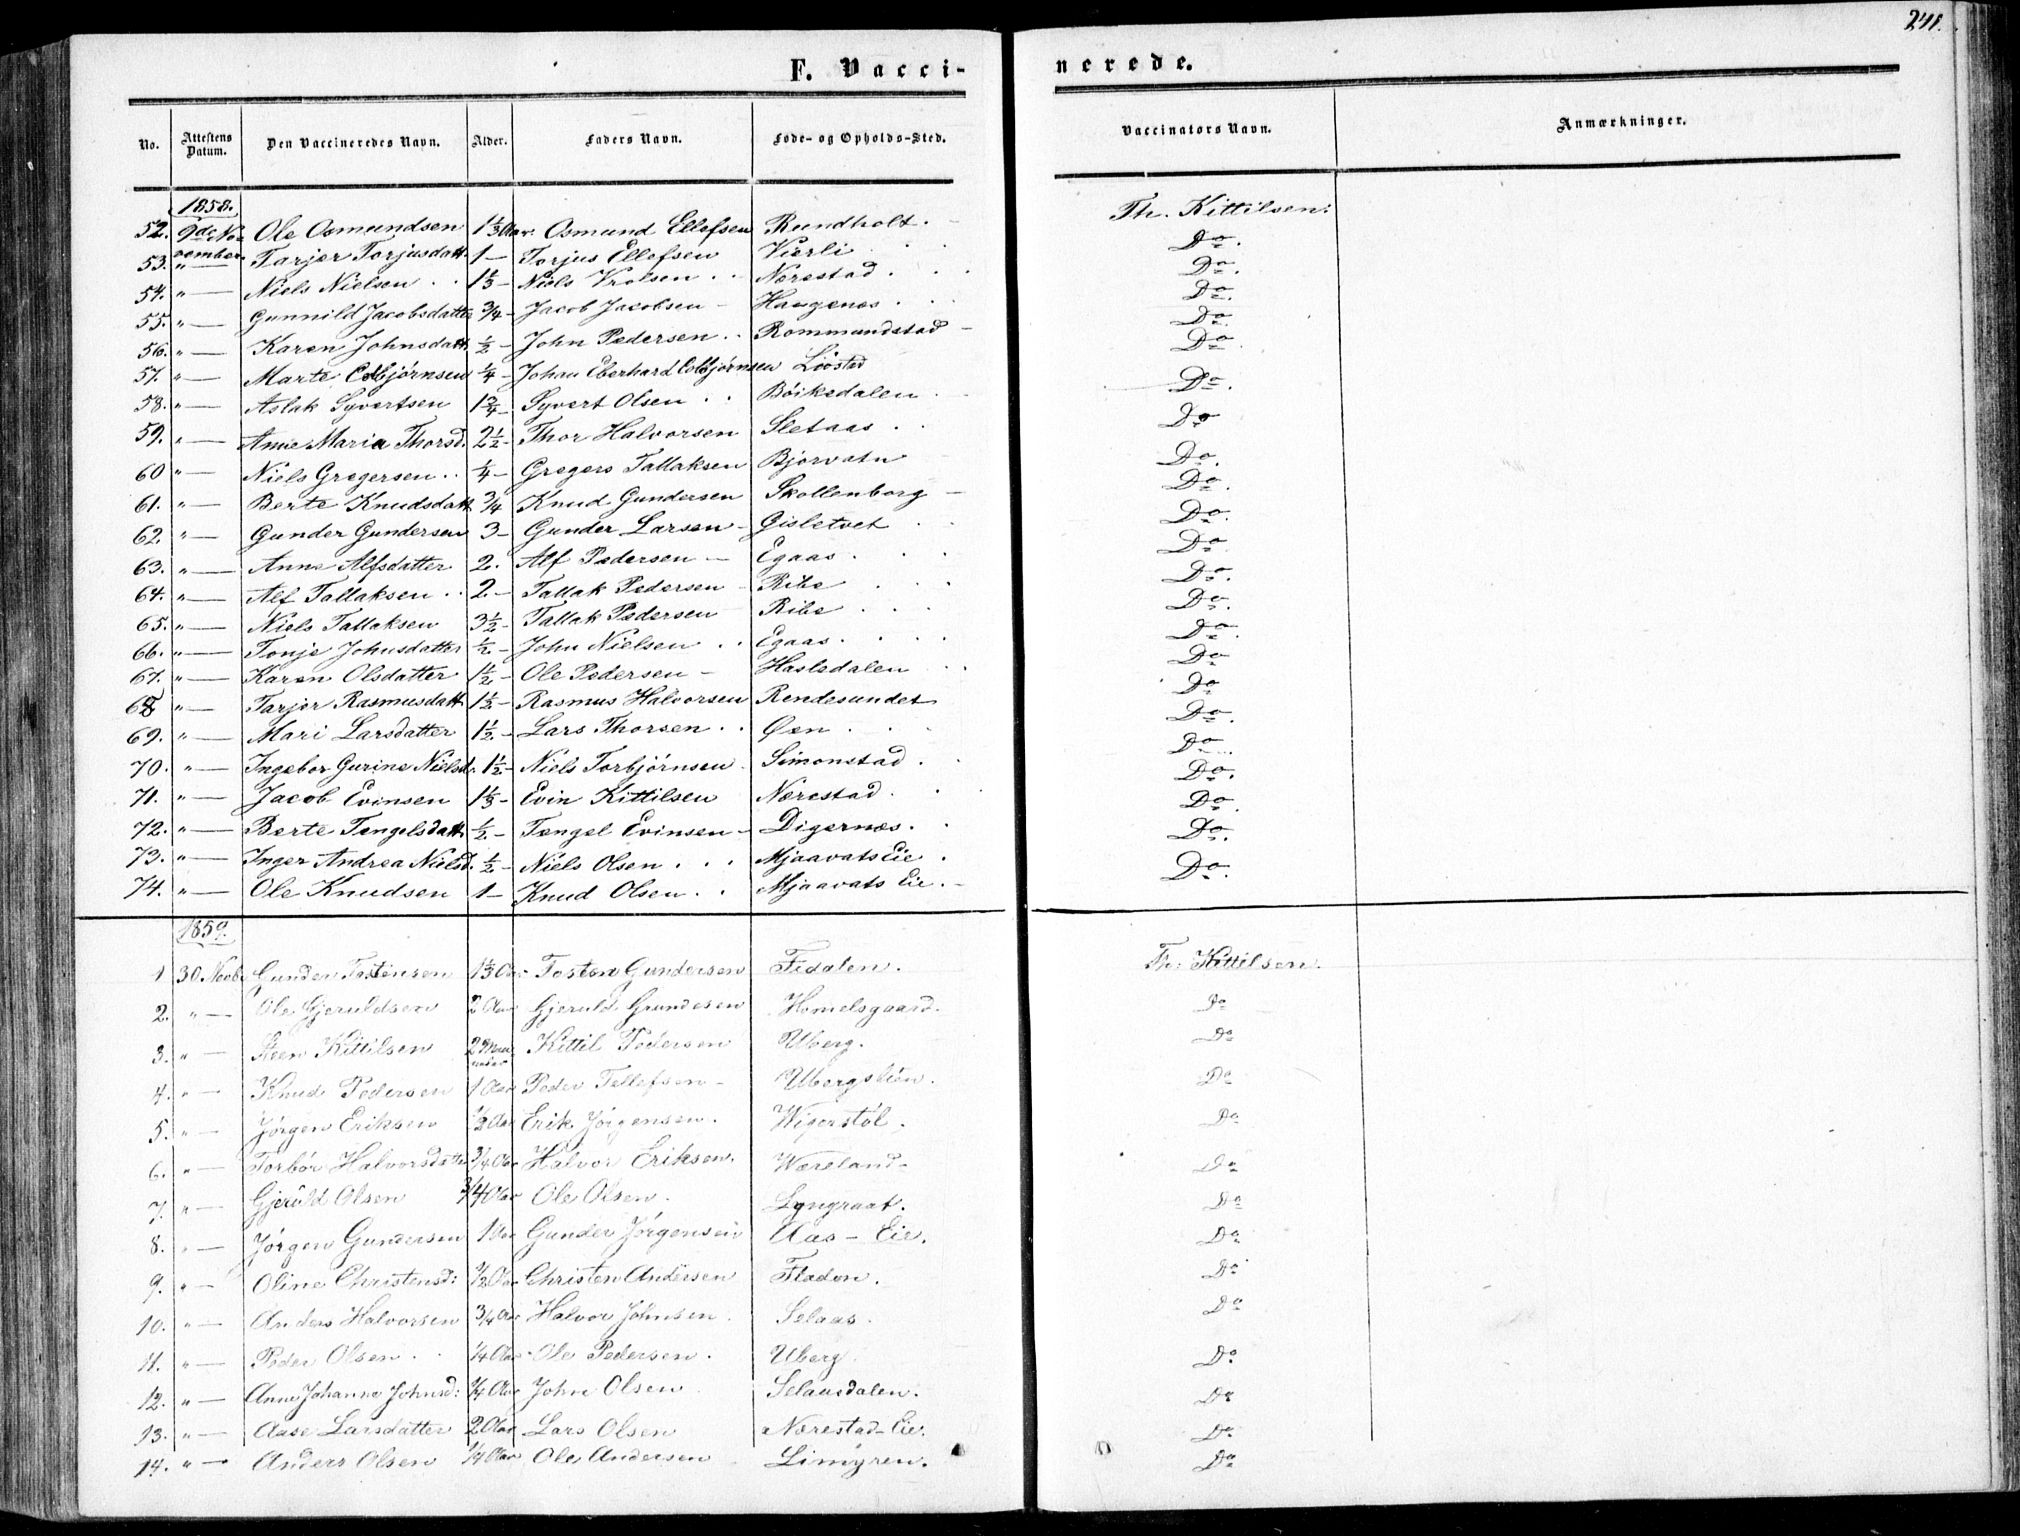 241.
F. Vacci-
nerede.
No. Attestens Datum. Den Vaccineredes Navn. Alder. Faders Navn. Føde- og Opholds-Sted. Vaccinators Navn. Anmærkninger.
1858.
52. 9de November Ole Osmundsen 1 1/3 Aar. Osmund Ellefsen Rundholt. Th. Kittilsen.
53. " — Tarjer Torjusdatt. 1 — Torjus Ellefsen Vierli Do.
54. " — Niels Nielsen 1 1/3 — Niels Vrolsen Nærestad. Do.
55. " — Gunnild Jacobsdatter 3/4 — Jacob Jacobsen — Haugenæs. Do.
56. " — Karen Johnsdatt. 1/2 — John Pedersen Rommundstad — Do.
57. " — Marte Esbjørnsen 1/4 — Johan Eberhard Esbjørnsen Liøstad Do.
58. " — Aslak Syvertsen 1 3/4 — Syvert Olsen Bøiksdalen Do.
59. " — Anne Maria Thorsd. 2 1/2 — Thor Halvorsen Sletaas Do
60 " — Niels Gregersen 1/4 — Gregers Tallaksen Bjorvatn Do.
61. " — Berte Knudsdatt. 3/4 Knud Gundersen Skollenborg — Do.
62. " — Gunder Gundersen 3 — Gunder Larsen — Gisletvet Do.
63. " — Anne Alfsdatter 2. Alf Pedersen — Egaas. Do.
64. " — Alf Tallaksen 2. — Tallak Pedersen Ribe Do.
65. " — Niels Tallaksen 3 1/2 — Tallak Pedersen Ribe Do.
66. " — Tonje Johnsdatter 1/2 — John Nielsen Egaas. Do.
67. " — Karen Olsdatter 1 1/2 — Ole Pedersen — Hasledalen Do
68 " — Tarjer Rasmusdatt. 1 1/2 — Rasmus Halvorsen Rendesundet Do
69. " — Mari Larsdatter 1 1/2. — Lars Thorsen Øen Do.
70. " — Ingebor Gurine Nielsd. 1 1/2 — Niels Torbjørnsen Simonstad. Do.
71. " — Jacob Evinsen 1 1/3 — Evin Kittilsen Nærestad. Do.
72. " — Berte Tengelsdatt. 1/2. — Tengel Evinsen — Digernæs. Do.
73. " — Inger Andrea Nielsd. 1/2 — Niels Olsen Mjaavats Eie. Do.
74. " — Ole Knudsen 1 — Knud Olsen Mjaavats Eie. Do.
1859.
1 30. Novbr Gunder Tostensen 1 1/3 Aar Tosten Gundersen Fidalen. Th: Kittilsen.
2. " — Ole Gjeruldsen 2 Aar Gjeruld Grundesen Homelsgaard. Do
3. " — Steen Kittilsen 2 Maaneder Kittil Pedersen Uberg. Do
4. " — Knud Pedersen 1 Aar Peder Tellefsen — Ubergslien. Do
5. " — Jørgen Eriksen 1/2 Aar Erik Jørgensen. Wigerstøl. Do
6. " — Torbør Halvorsdatter 3/4 Aar Halvor Eriksen. Wæreland — Do
7. " — Gjeruld Olsen 3/4 Aar Ole Olsen. Lyngraat. Do
8. " — Jørgen Gundersen 1 Aar Gunder Jørgensen Aas — Eie. Do
9. " — Oline Christensd: 1/2 Aar Christen Andersen Fladen. Do
10. " — Anders Halvorsen 3/4 Aar Halvor Johnsen. Selaas. Do
11. " — Peder Olsen 1/4 Aar Ole Pedersen. Uberg. Do
12. " — Anne Johanne Johnsd: 1/4 Aar John Olsen Selaasdalen. Do
13. " — Aase Larsdatter 2 Aar Lars Olsen Nærestad-Eie. Do
14. " — Anders Olsen 1/4 Aar Ole Andersen Limyren. Do